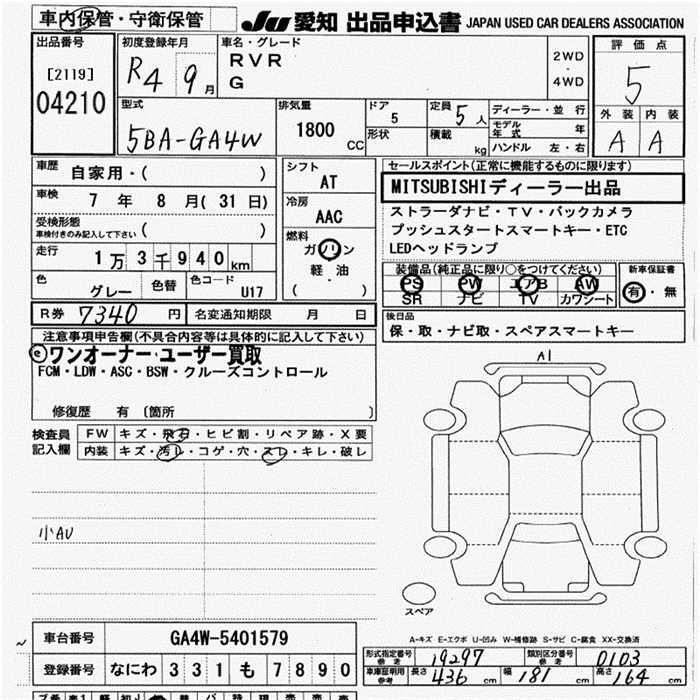 車内保管・守衛保管
JU 愛知 出品申込書 JAPAN USED CAR DEALERS ASSOCIATION
出品番号
[2119]
04210
初度登録年月
R4 9 月
車名・グレード
RVR
G
2WD
・
4WD
評価点
5
外装 内装
A A
型式
5BA-GA4W
排気量
1800 CC
ドア
5
形状
定員
5 人
積載
kg
ディーラー・並行
モデル年式 年
ハンドル 左・右
車歴
自家用・( )
車検
7 年 8 月( 31 日)
受検形態
車検付きのみ記入して下さい ( )
走行
1万3千940km
色
グレー
色替
色コード
U17
シフト
AT
冷房
AAC
燃料
ガソリン
軽・油
( )
セールスポイント(正常に機能するものに限ります)
MITSUBISHIディーラー出品
ストラーダナビ・TV・バックカメラ
プッシュスタートスマートキー・ETC
LEDヘッドランプ
装備品(純正品に限り○をつけてください)
PS PW エアB AW
SR ナビ TV カワシート
新車保証書
有・無
R券 7340 円
名変通知期限 月 日
後日品
保・取・ナビ取・スペアスマートキー
注意事項申告欄(不具合内容等は具体的に記入して下さい)
ⓔワンオーナー・ユーザー買取
FCM・LDW・ASC・BSW・クルーズコントロール
修復歴 有 〔箇所 〕
検査員
記入欄
FW キズ・飛石・ヒビ割・リペア跡・X要
内装 キズ・汚レ・コゲ・穴・スレ・キレ・破レ
小AU
A1
スペア
A-キズ E-エクボ U-凹み W-補修跡 S-サビ C-腐食 XX-交換済
車台番号 GA4W-5401579
登録番号 なにわ 331 も 7890
形式指定番号
参考
19297
類別区分番号
参考
0103
車庫証明用
参考
長さ 436 cm
幅 181 cm
高さ 164 cm